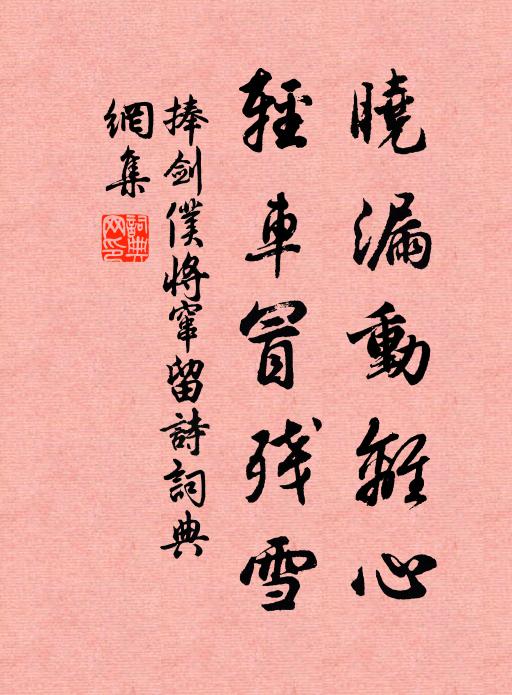 曉漏動離心
輕車冒残雪
捧劍僕將窜留詩詞典
網集
詞典網印